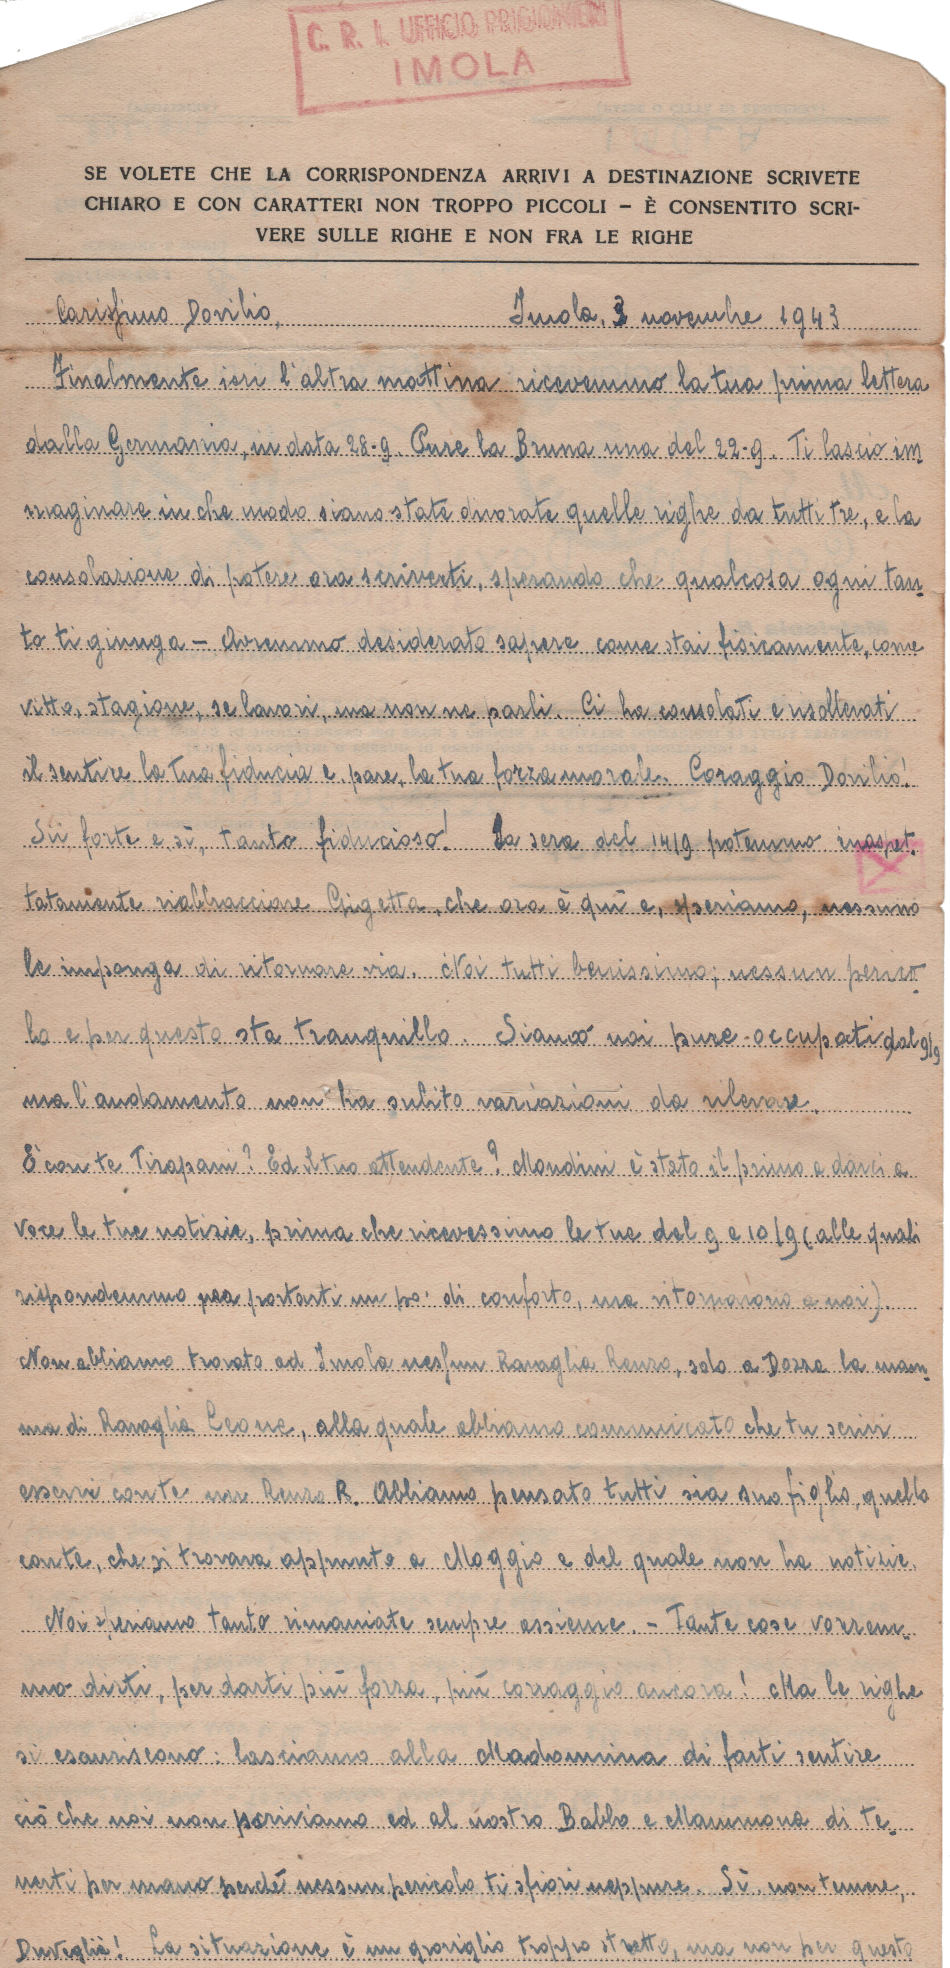 C. R. I. UFFICIO PRIGIONIERI
IMOLA
SE VOLETE CHE LA CORRISPONDENZA ARRIVI A DESTINAZIONE SCRIVETE
CHIARO E CON CARATTERI NON TROPPO PICCOLI – È CONSENTITO SCRI-
VERE SULLE RIGHE E NON FRA LE RIGHE
Carissimo Dovilio, Imola, 3 novembre 1943
Finalmente ieri l'altra mattina ricevemmo la tua prima lettera
dalla Germania, in data 28-9. Pure la Bruna una del 22-9. Ti lascio im
maginare in che modo siano state divorate quelle righe da tutti tre, e la
consolazione di potere ora scriverti, sperando che qualcosa ogni tan-
to ti giunga – Avremmo desiderato sapere come stai fisicamente, come
vitto, stagione, se lavori, ma non ne parli. Ci ha consolati e risollevati
il sentire la tua fiducia e, pare, la tua forza morale. Coraggio Dovilio!
Sii forte e sì, tanto fiducioso! La sera del 14/9 potemmo inaspet-
tatamente riabbracciare Gigetta, che ora è qui e, speriamo, nessuno
le imponga di ritornare via. Noi tutti benissimo; nessun perico-
lo e per questo sta tranquillo. Siamo noi pure occupati dal 9/9
ma l'andamento non ha subito variazioni da rilevare.
È con te Tirapani? Ed il tuo attendente? Mondini è stato il primo a darci a
vere le tue notizie, prima che ricevessimo le tue del 9 e 10/9 (alle quali
rispondemmo per portarti un po' di conforto, ma ritornarono a noi).
Non abbiamo trovato ad Imola nessun Ravaglia Renzo, solo a Dozza la mam-
ma di Ravaglia Leone, alla quale abbiamo comunicato che tu scrivi
esservi con te un Renzo R. Abbiamo pensato tutti sia suo figlio, quello
con te, che si trovava appunto a Moggio e del quale non ha notizie.
Noi speriamo tanto rimaniate sempre assieme. – Tante cose vorrem-
mo dirti, per darti più forza, più coraggio ancora! Ma le righe
si esauriscono: lasciamo alla Madonnina di farti sentire
ciò che noi non scriviamo ed al nostro Babbo e Mammona di te-
nerti per mano perchè nessun pericolo ti sfiori neppure. Sì, non temere,
La situazione è un groviglio troppo stretto, ma non per questo